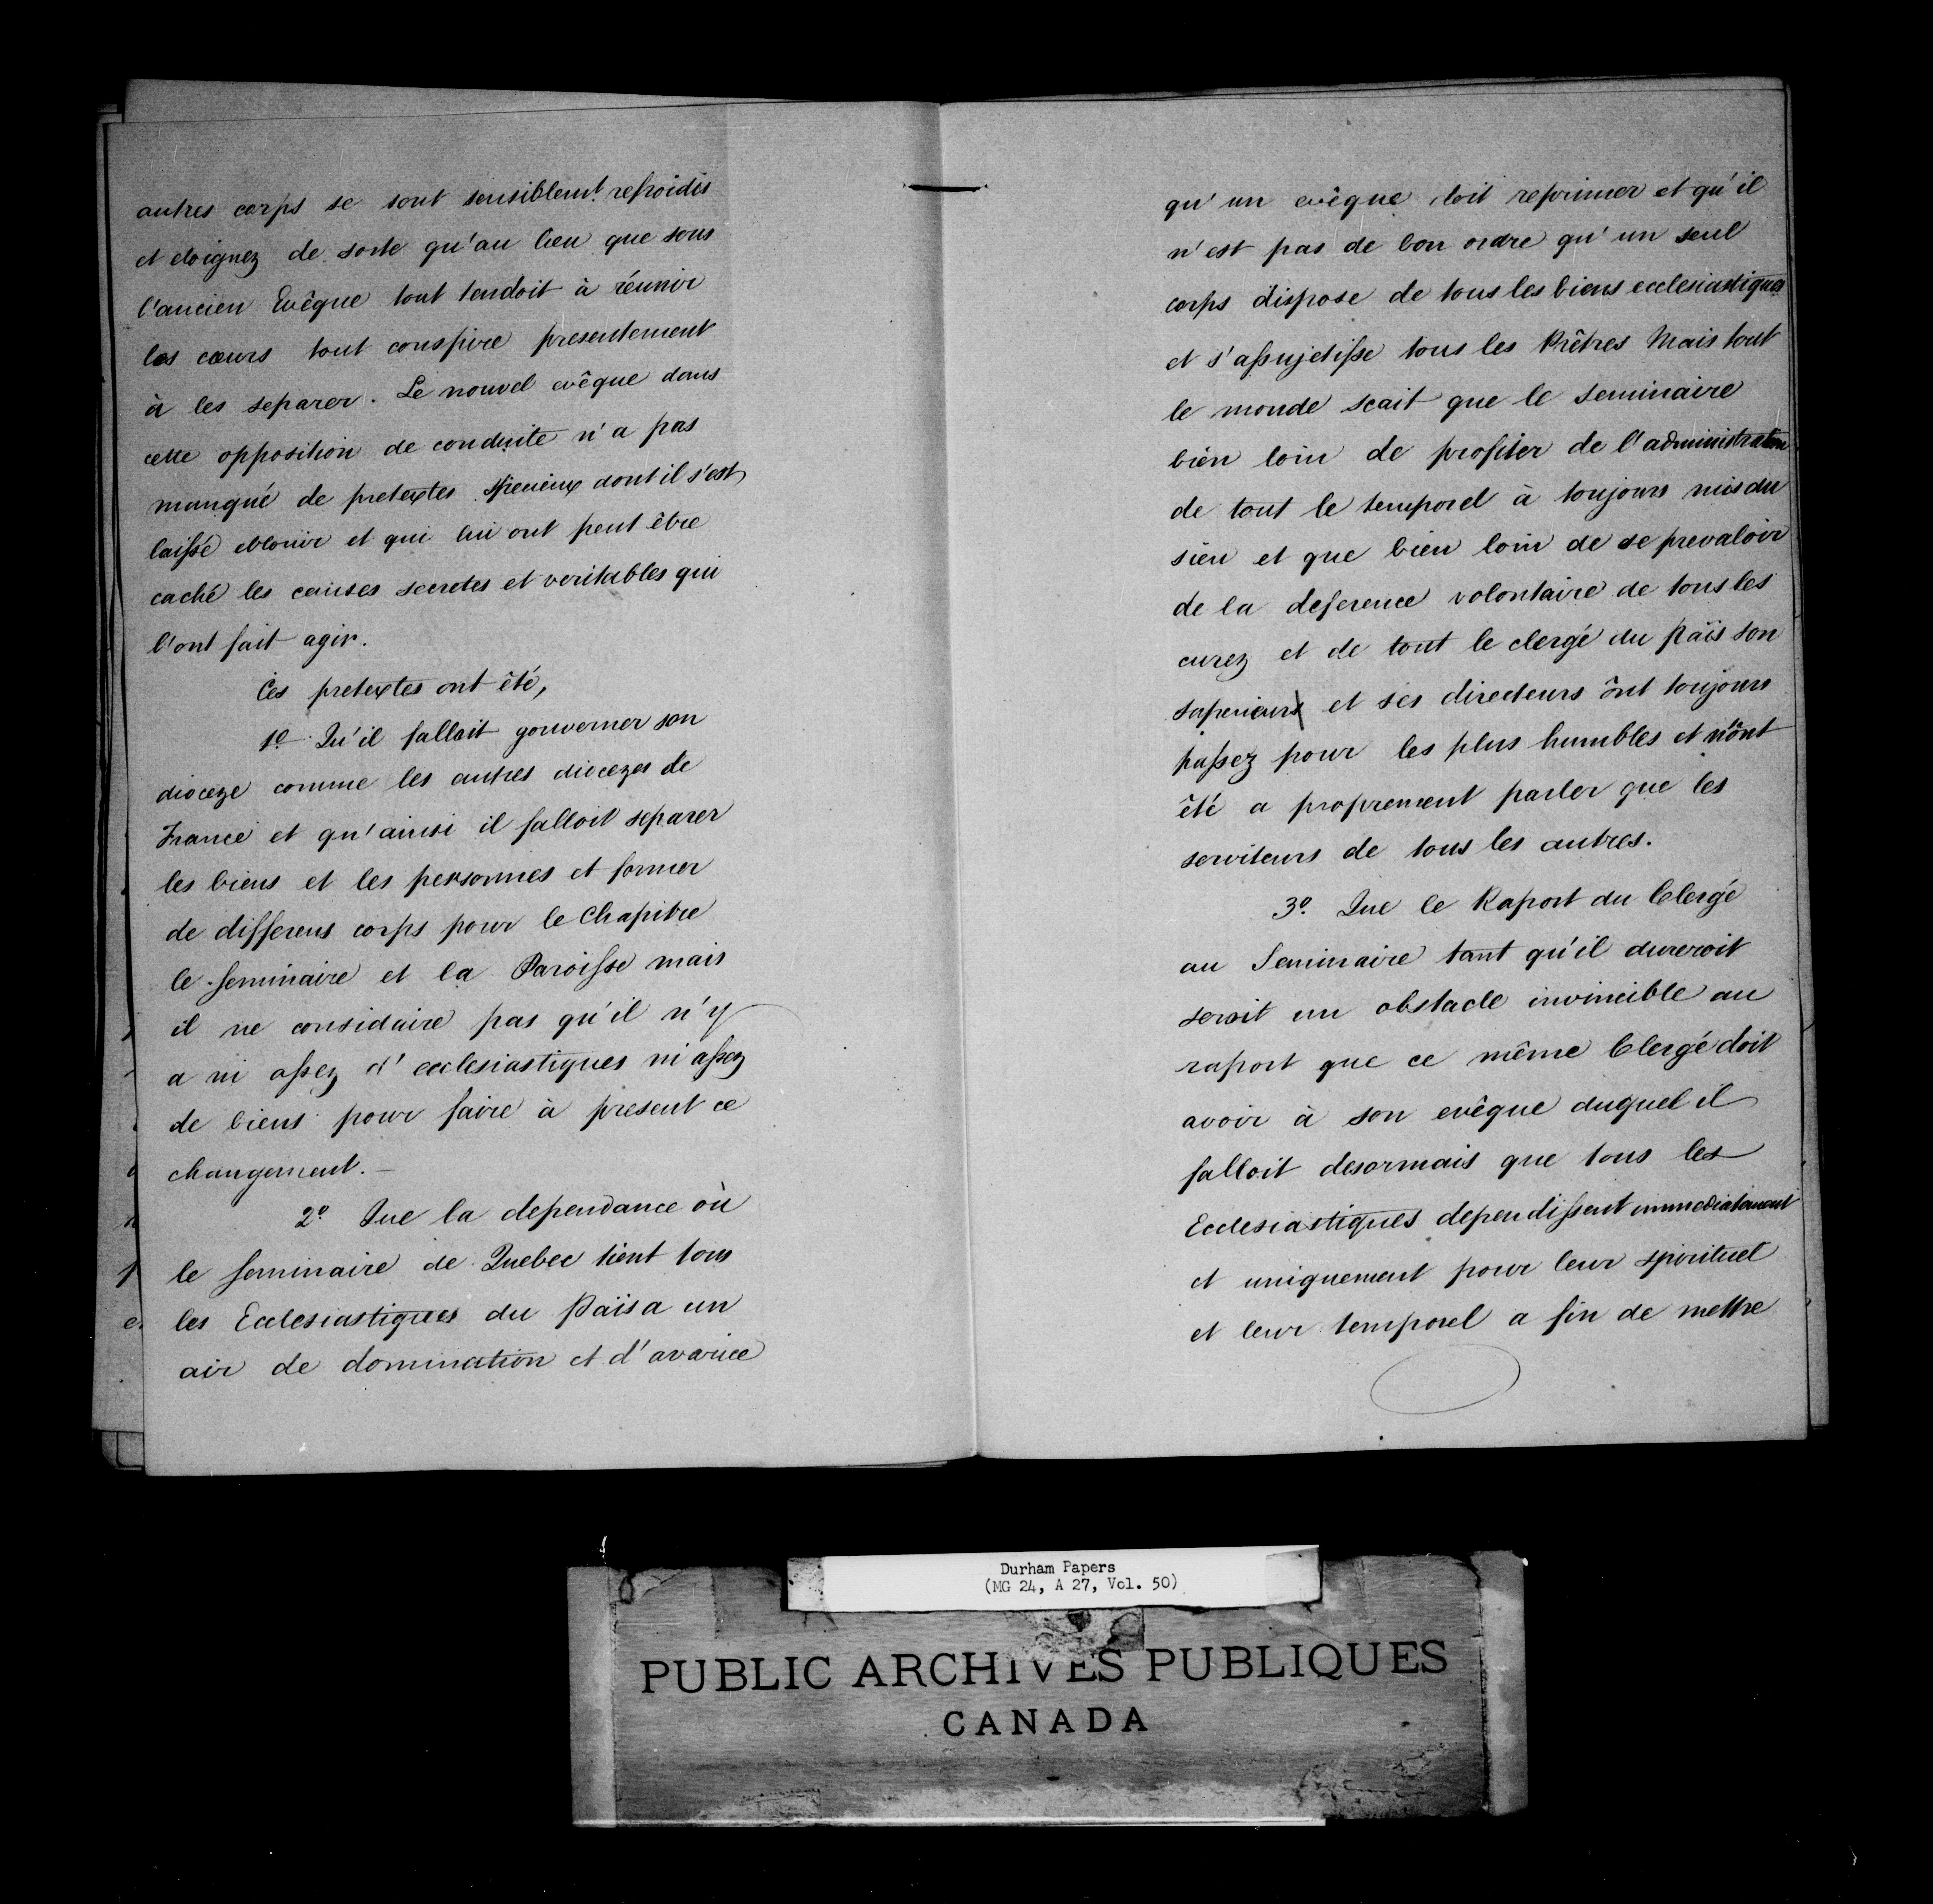 autres corps se sont sensiblemt. refroidis
et eloignez de sorte qu'au lieu que sous
l'ancien Evêque tout tendoit à réunir
les cœurs tout conspire presentement
à les separer. Le nouvel evêque dans
cette opposition de conduite n'a pas
manqué de pretextes specieux dont il s'est
laissé eblouir et qui lui ont peut être
caché les causes secretes et veritables qui
l'ont fait agir.
Ces pretextes ont êté,
1º Qu'il falloit gouverner son
dioceze comme les autres diocezes de
France et qu'ainsi il falloit separer
les biens et les personnes et former
de differens corps pour le Chapitre
le seminaire et la Paroisse mais
il ne considaire pas qu'il n'y
a ni assez d'ecclesiastiques ni assez
de biens pour faire à present ce
changement. —
2º Que la dependance où
le seminaire de Quebec tient tous
les Ecclesiastiques du Païs a un
air de domination et d'avarice
qu'un evêque doit reprimer et qu'il
n'est pas de bon ordre qu'un seul
corps dispose de tous les biens ecclesiastiques
et s'assujetisse tous les Prêtres Mais tout
le monde scait que le seminaire
bien loin de profiter de l'administration
de tout le temporel à toujours mis du
sien et que bien loin de se prevaloir
de la deference volontaire de tous les
curez et de tout le clergé du Païs son
superieurs et ses directeurs ônt toujours
passez pour les plus humbles et n'ônt
êté a proprement parler que les
serviteurs de tous les autres.
3º. Que le Raport du Clergé
au Seminaire tant qu'il dureroit
seroit un obstacle invincible au
raport que ce même Clergé doit
avoir à son evêque duquel il
falloit desormais que tous les
Ecclesiastiques dependissent immediatement
et uniquement pour leur spirituel
et leur temporel a fin de mettre
Durham Papers
(MG 24, A 27, Vol. 50)
PUBLIC ARCHIVES PUBLIQUES
CANADA